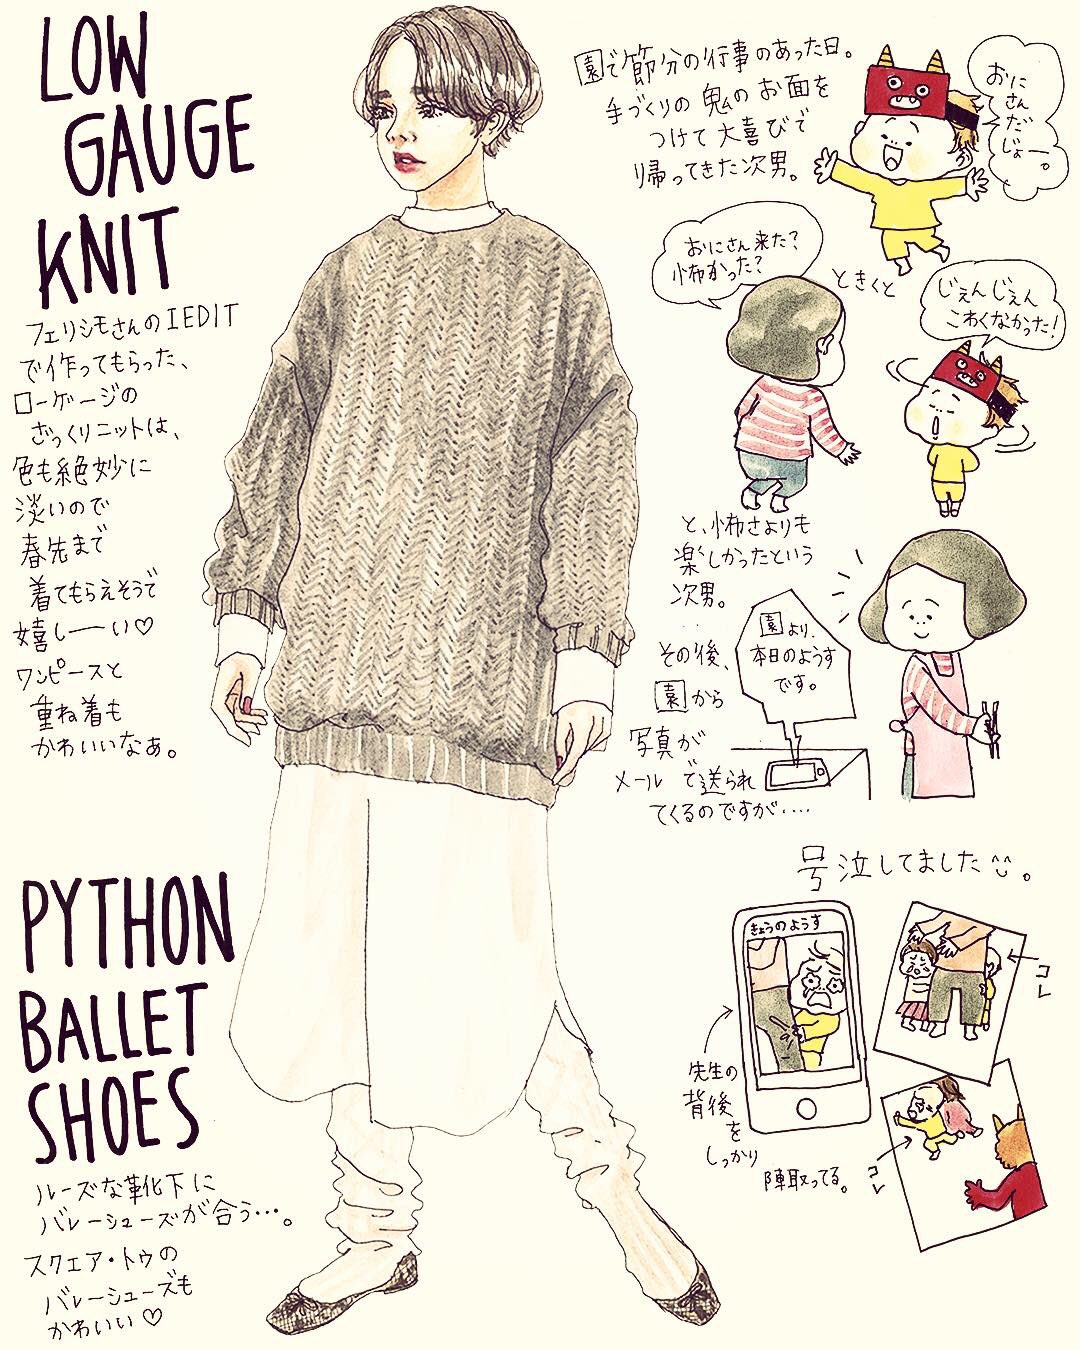 LOW
GAUGE
KNIT
フェリシモさんのIEDIT
で作ってもらった、
ローゲージの
ざっくりニットは、
色も絶妙に
淡いので
春先まで
着てもらえそうで
嬉しーい♡
ワンピースと
重ね着も
かわいいなぁ。
PYTHON
BALLET
SHOES
ルーズな靴下に
バレーシューズが合う…。
スクエア・トゥの
バレーシューズも
かわいい♡
園で節分の行事のあった日。
手づくりの鬼のお面を
つけて大喜びで
帰ってきた次男。
おに
さん
だ
じょー。
おにさん来た?
怖かった?
ときくと
じぇんじぇん
こわくなかった!
と、怖さよりも
楽しかったという
次男。
その後、
園から
写真が
メールで送られ
てくるのですが‥‥
園より、
本日のようす
です。
号泣してました。
きょうのようす
先生の
背後
を
しっかり
陣取ってる。
コレ
コレ